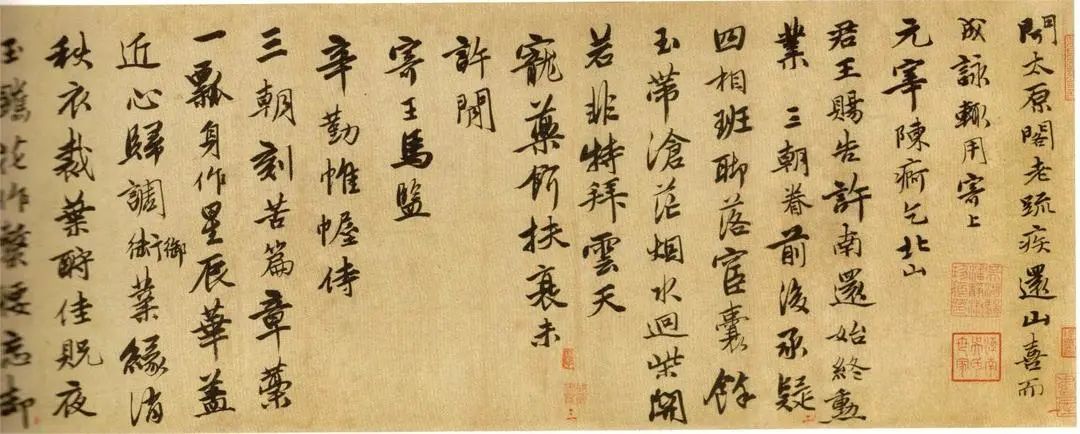 聞太原閣老疏疾還山喜而
成詠輒用寄上
元宰陳痾乞北山
君王賜告許南還始終勳
業三朝眷前後承疑
四相班聊落宦囊餘
玉帶滄茫烟水迴柴關
若非特拜雲天
寵藥餌扶衰未
許閒
寄王馬監
辛勤帷幄侍
三朝刻苦篇章藁
一瓢身作星辰華蓋
近心歸調御業緣消
秋衣裁葉酧佳貺夜
玉花作腰忘却